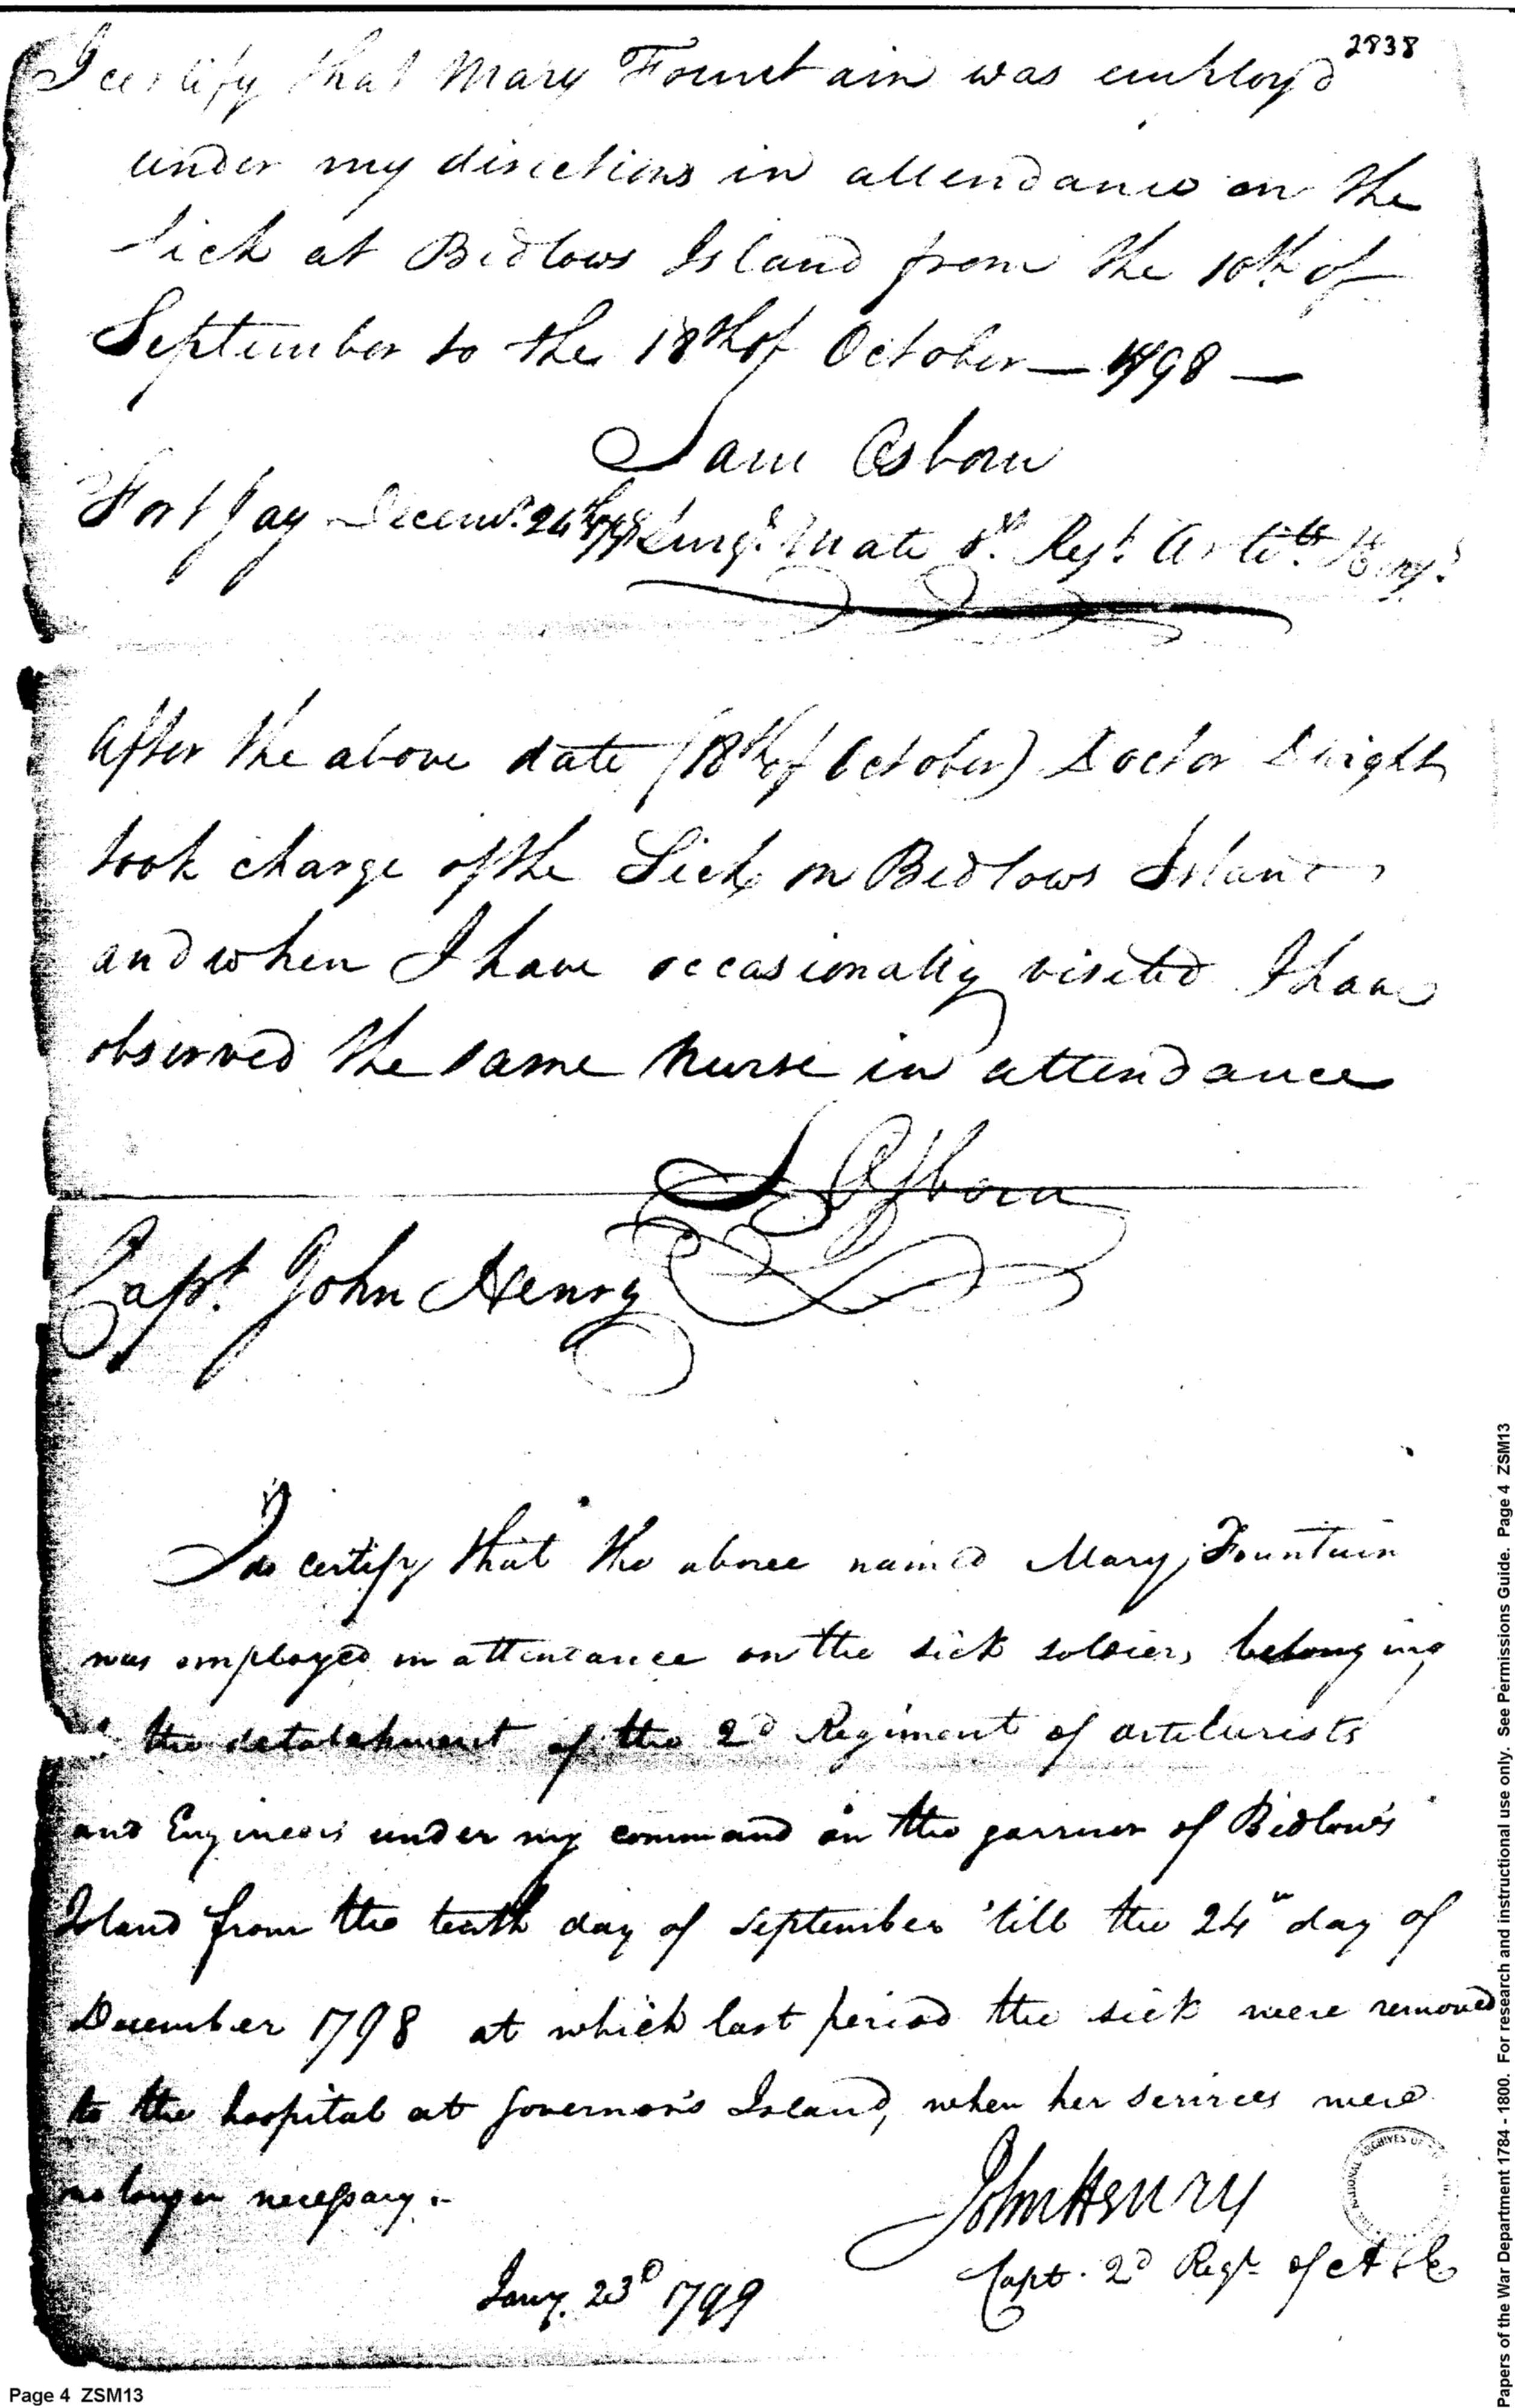 2838
I certify that Mary Fountain was employd
under my directions in attendance on the
sick at Bedlows Island from the 10th of
September to the 18th of October — 1798 —
Sam Osborn
Fort Jay Decemr. 24th 1798 Surgs. Mate Regt. Artills
After the above date (18th of October) Doctor Dwight
took charge of the Sick on Bedlows Island
and when I have occasionally visited I have
observed the same nurse in attendance
S Osborn
Capt. John Henry
I do certify that the above named Mary Fountain
was employed in attendance on the sick soldiers belonging
the detatchment of the 2d Regiment of artilurists
and Engineers under my command in the garrison of Bedlow's
Island from the tenth day of September 'till the 24th day of
December 1798 at which last period the sick were removed
to the hospital at Governor's Island, when her services were
no longer necessary.-
John Henry
Capt. 2d Regt. of A & E
Jany. 23d 1799
Page 4 ZSM13
Papers of the War Department 1784 - 1800. For research and instructional use only. See Permissions Guide. Page 4 ZSM13